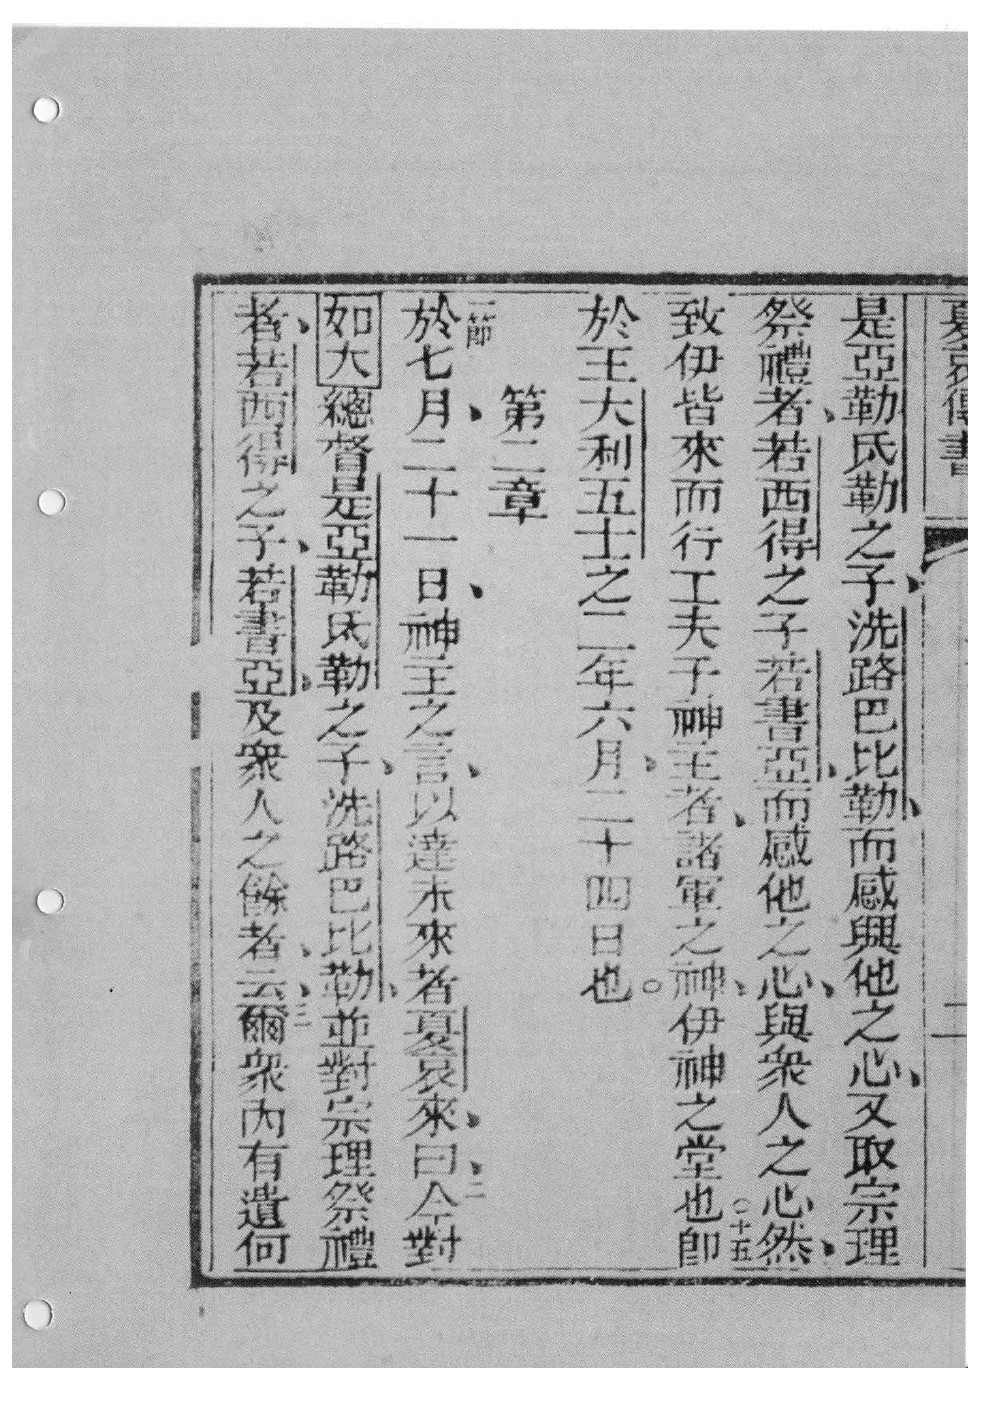 夏哀傳書 二
是亞勒氐勒之子、洗路巴比勒、而感興他之心、又取宗理
祭禮者、若西得之子若書亞、而感他之心、與衆人之心然、
致伊皆來而行工夫于神主者、諸軍之神、伊神之堂也○十五即
於王大利五士之二年六月、二十四日也○
第二章
一節於七月、二十一日、神主之言、以達未來者夏哀來、曰、二今對
如大總督是亞勒氐勒之子、洗路巴比勒、並對宗理祭禮
者、若西得之子、若書亞、及衆人之餘者、云、三爾衆內有遺何